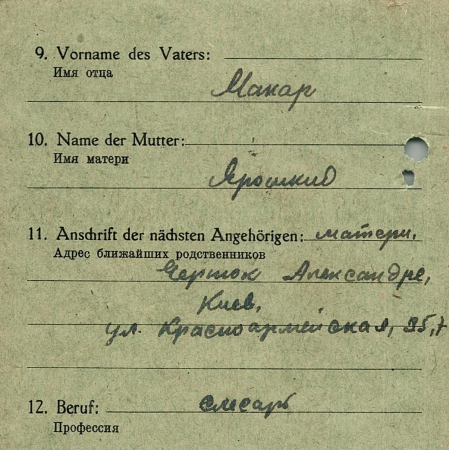 9. Vorname des Vaters:
Имя отца
Макар
10. Name der Mutter:
Имя матери
Ярошкив
11. Anschrift der nächsten Angehörigen: матери.
Адрес ближайших родственников
Чершок Александре,
Киев,
ул. Красноармейская, 35,7
12. Beruf: слесарь
Профессия